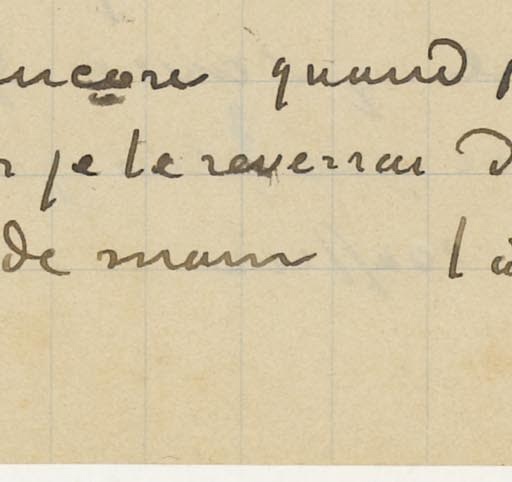 encore quand
je te reverrai
de main